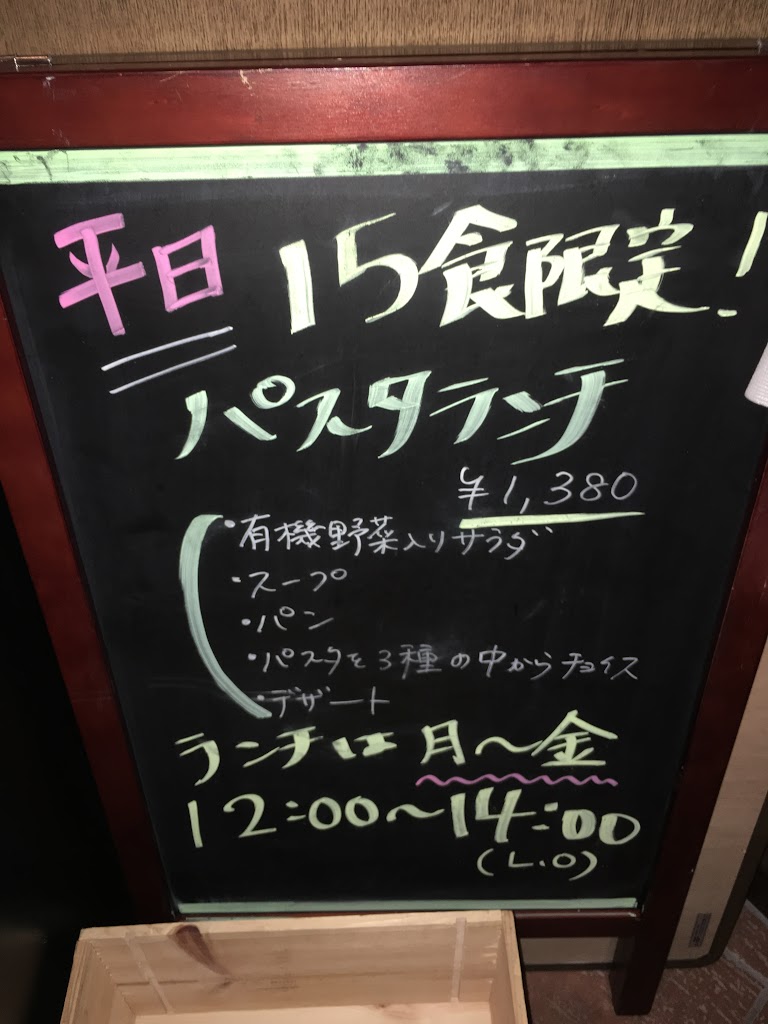 平日 15食限定!
パスタランチ
¥1,380
・有機野菜入りサラダ
・スープ
・パン
・パスタを3種の中からチョイス
・デザート
ランチは月〜金
12:00〜14:00
(L.O)